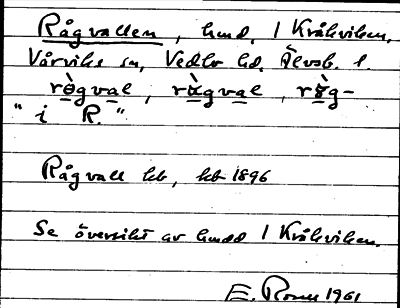 Rågvallen, hmd, 1 Kråkviken,
Vårviks sn, Vedbo hd. Älvsb. l.
rògval, ràgval, rög-
"i R."
Rågvall kb, kb 1896
Se översikt av hmdd 1 Kråkviken.
E. 1961